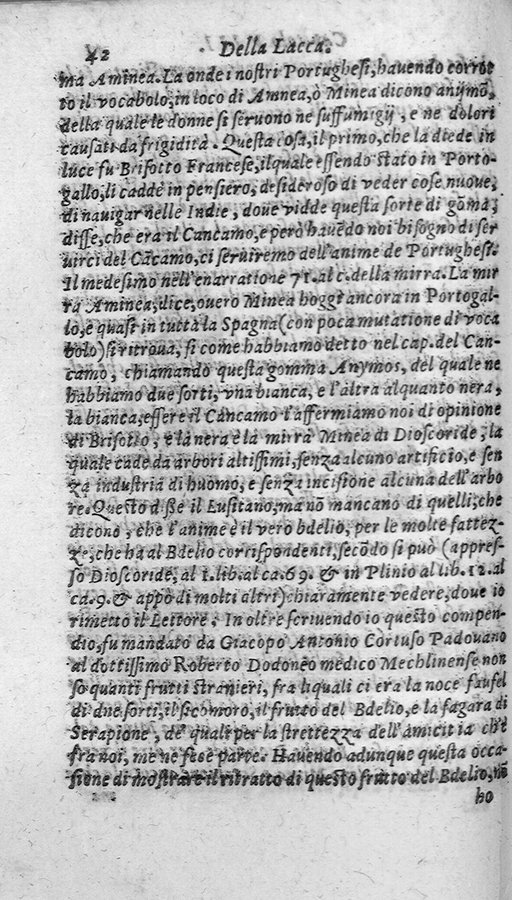 42 Della Lacca.
ma Aminea. La onde i nostri Portughesi, hauendo corrot
to il vocabolo, in loco di Amnea, ò Minea dicono anymō,
della quale le donne si seruono ne suffumigij, e ne dolori
causati da frigidità. Questa cosa, il primo, che la diede in
luce fu Brisotto Francese, ilquale essendo stato in Porto-
gallo, li cadde in pensiero, desideroso di veder cose nuoue,
di nauigar nelle Indie, doue vidde questa sorte di gōma;
disse, che era il Cancamo, e però hauēdo noi bisogno di ser
uirci del Cācamo, ci seruiremo dell'anime de Portughesi.
Il medesimo nell'enarratione 71. al c. della mirra. La mir
ra Aminea, dice, ouero Minea hoggi ancora in Portogal-
lo, e quasi in tutta la Spagna (con poca mutatione di voca
bolo) si ritroua, si come habbiamo detto nel cap. del Can-
camo, chiamando questa gomma Anymos, del quale ne
habbiamo due sorti, vna bianca, e l'altra alquanto nera,
la bianca, essere il Cancamo l'affermiamo noi di opinione
di Brisotto, e la nera è la mirra Minea di Dioscoride, la
quale cade da arbori altissimi, senza alcuno artificio, e sen
za industria di huomo, e senza incisione alcuna dell'arbo
re. Questo disse il Lusitano; ma nō mancano di quelli, che
dicono, che l'anime è il vero bdelio, per le molte fattez-
ze, che ha al Bdelio corrispondenti, secōdo si può (appres-
so Dioscoride, al 1. lib. al ca. 69. & in Plinio al lib. 12. al
ca. 9. & appò di molti altri) chiaramente vedere, doue io
rimetto il Lettore; In oltre scriuendo io questo compen-
dio, fu mandato da Giacopo Antonio Cortuso Padouano
al dottissimo Roberto Dodoneo medico Mechlinense non
so quanti frutti stranieri, fra liquali ci era la noce faufel
di due sorti, il sicomoro, il frutto del Bdelio, e la fagara di
Serapione, de' quali per la strettezza dell'amicitia ch'è
fra noi, me ne fece parte. Hauendo adunque questa occa-
sione di mostrare il ritratto di questo frutto del Bdelio, nō
ho